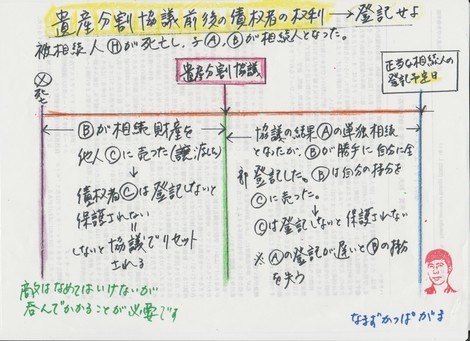 遺産分割協議前後の債権者の権利→登記せよ
被相続人Ⓗが死亡し、子Ⓐ、Ⓑが相続人となった。
遺産分割協議
正当な相続人の
登記予定日
Ⓧ
死亡
Ⓑが相続財産を
他人Ⓒに売った(譲渡した)
債権者Ⓒは登記しないと
保護されない
しないと協議でリセット
される
協議の結果Ⓐの単独相続
となったが、Ⓑが勝手に自分に全
部登記した。Ⓑは自分の持分を
Ⓒに売った。
Ⓒは登記しないと保護されない
※Ⓐの登記が遅いとⒷの持分
を失う
敵はなめてはいけないが
呑んでかかることが必要です
なまずかっぱがま